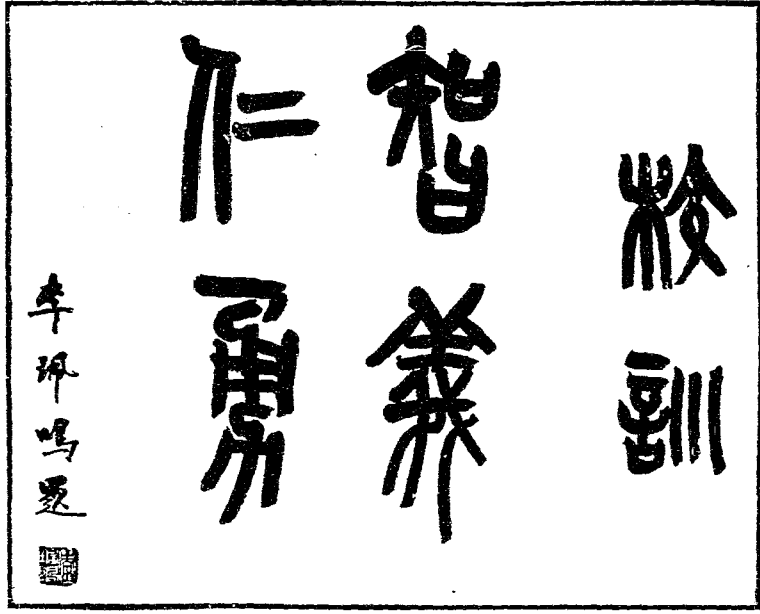 校訓
智義
仁勇
李珮鳴題